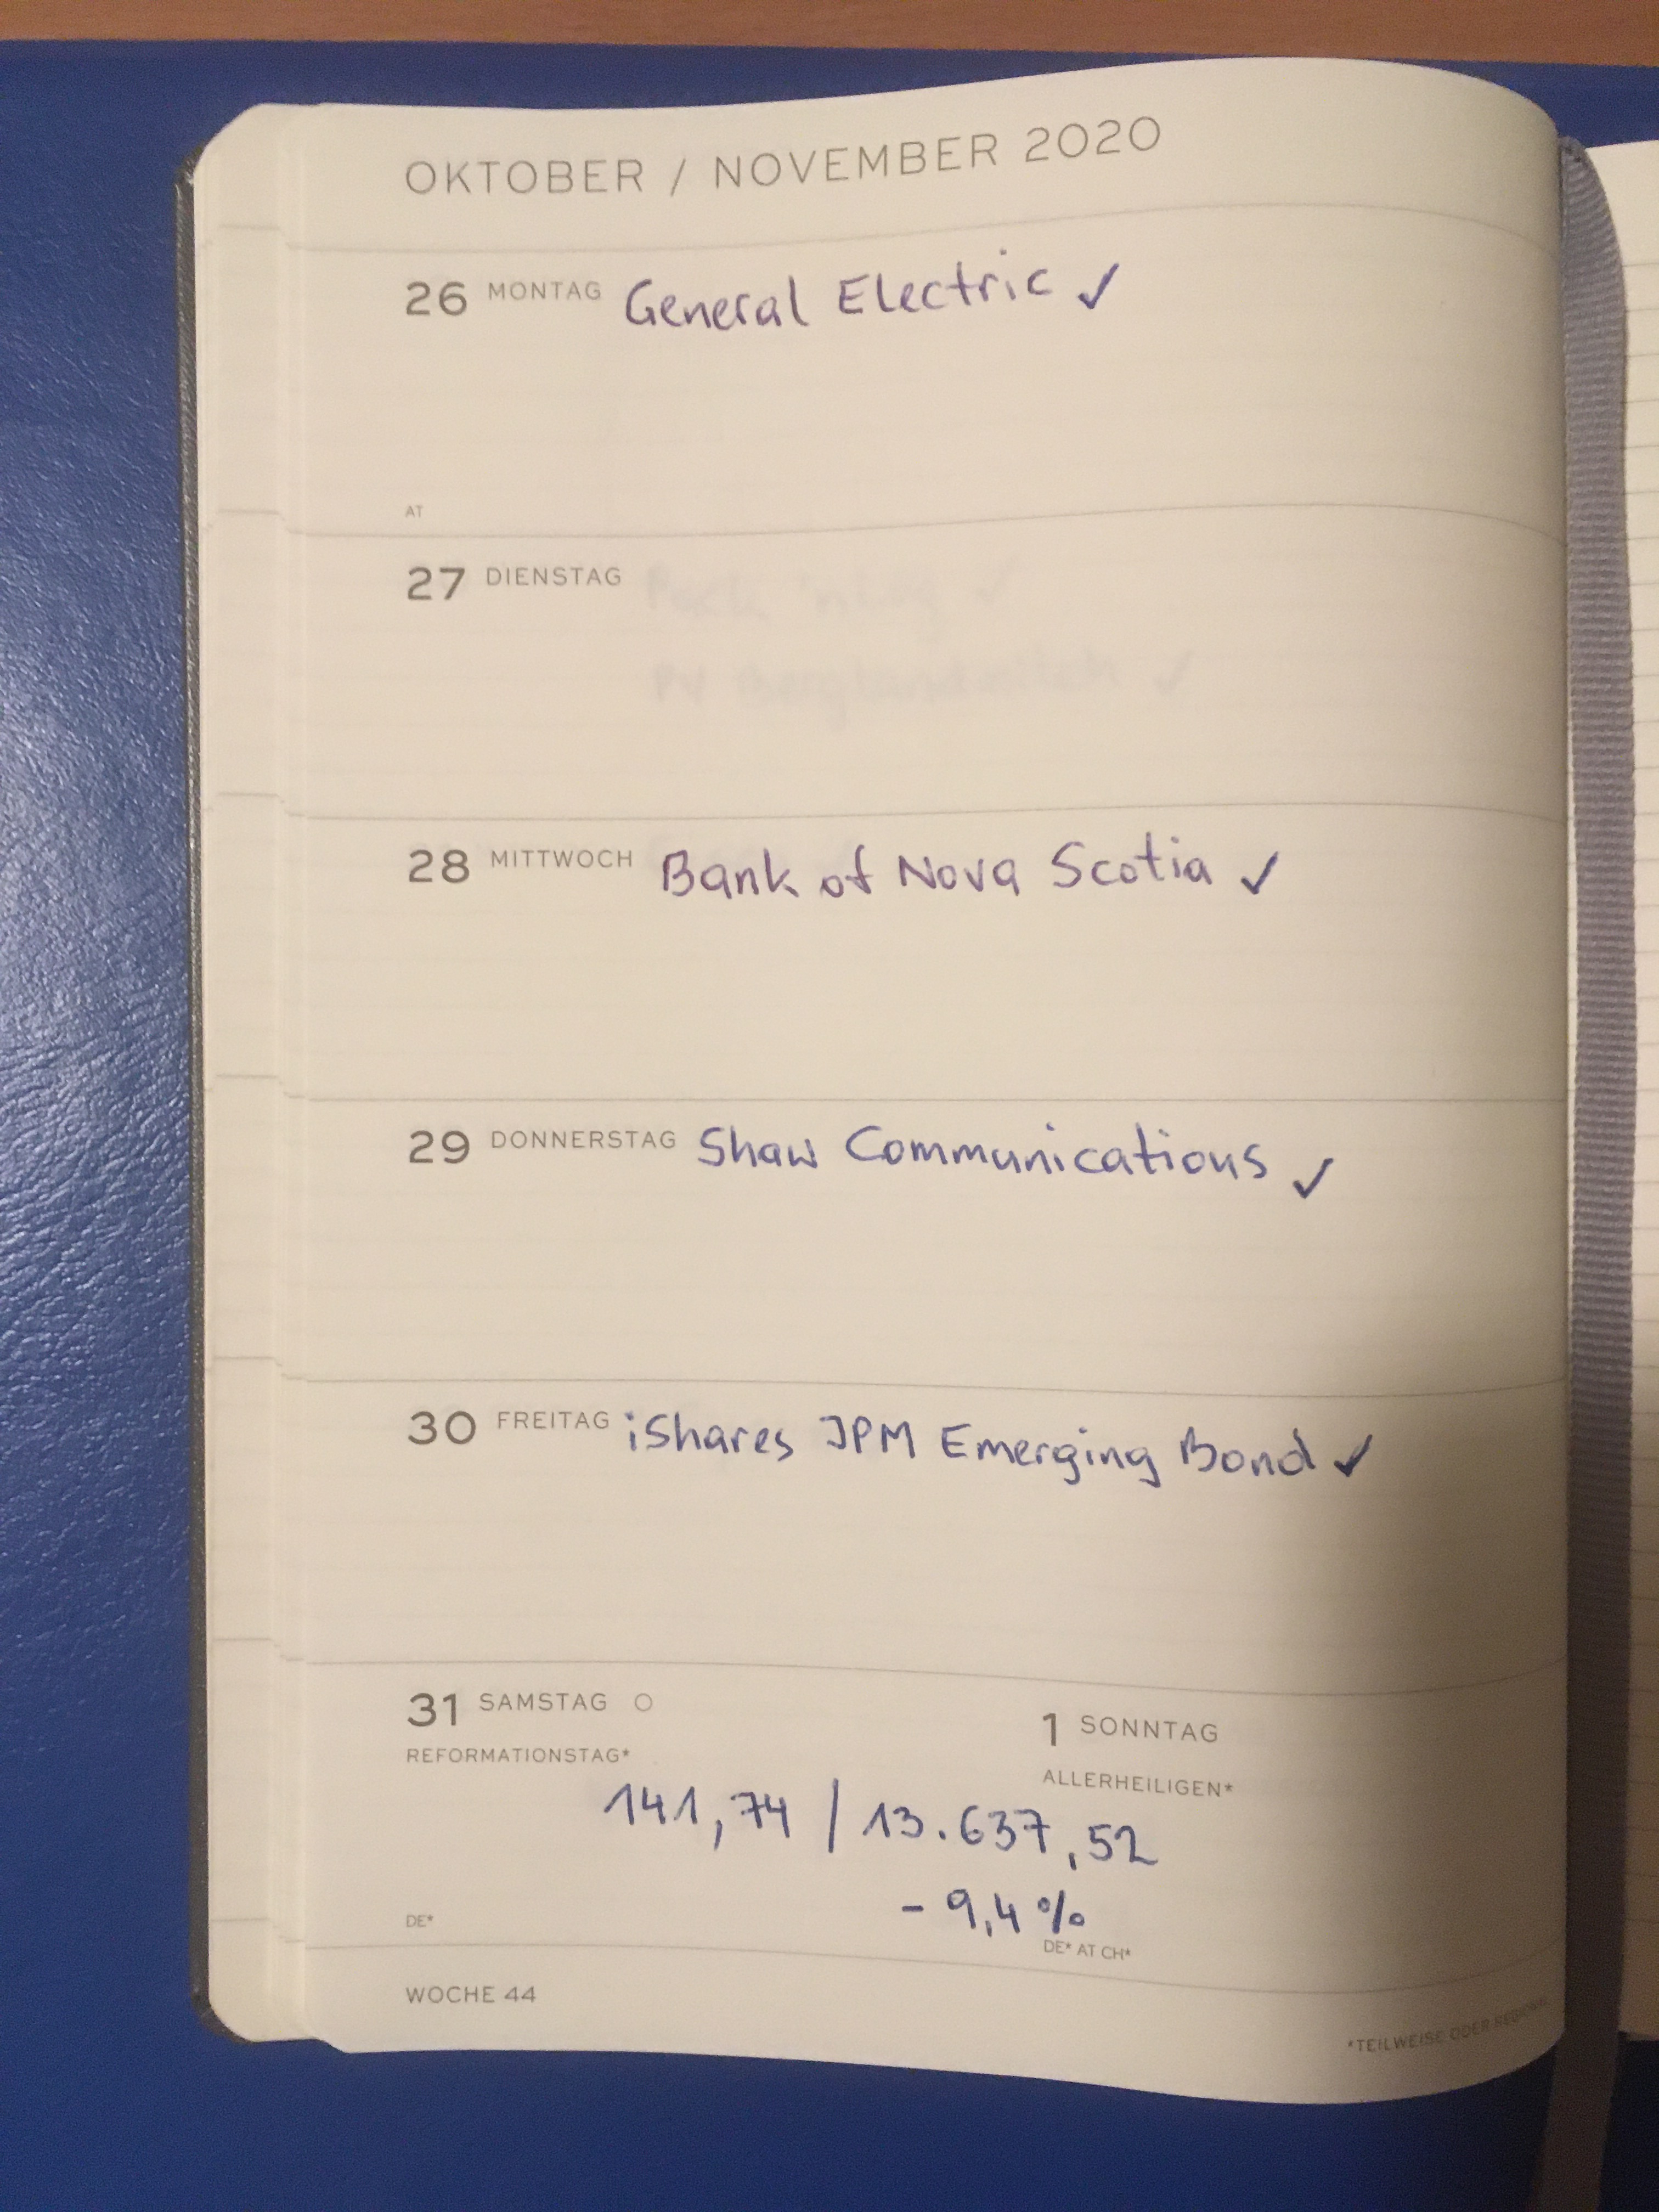 OKTOBER / NOVEMBER 2020
26 MONTAG General Electric ✓
AT
27 DIENSTAG
28 MITTWOCH Bank of Nova Scotia ✓
29 DONNERSTAG Shaw Communications ✓
30 FREITAG iShares JPM Emerging Bond ✓
31 SAMSTAG
REFORMATIONSTAG*
1 SONNTAG
ALLERHEILIGEN*
141,74 / 13.637,52
- 9,4 %
DE*
DE* AT CH*
WOCHE 44
*TEILWEISE ODER